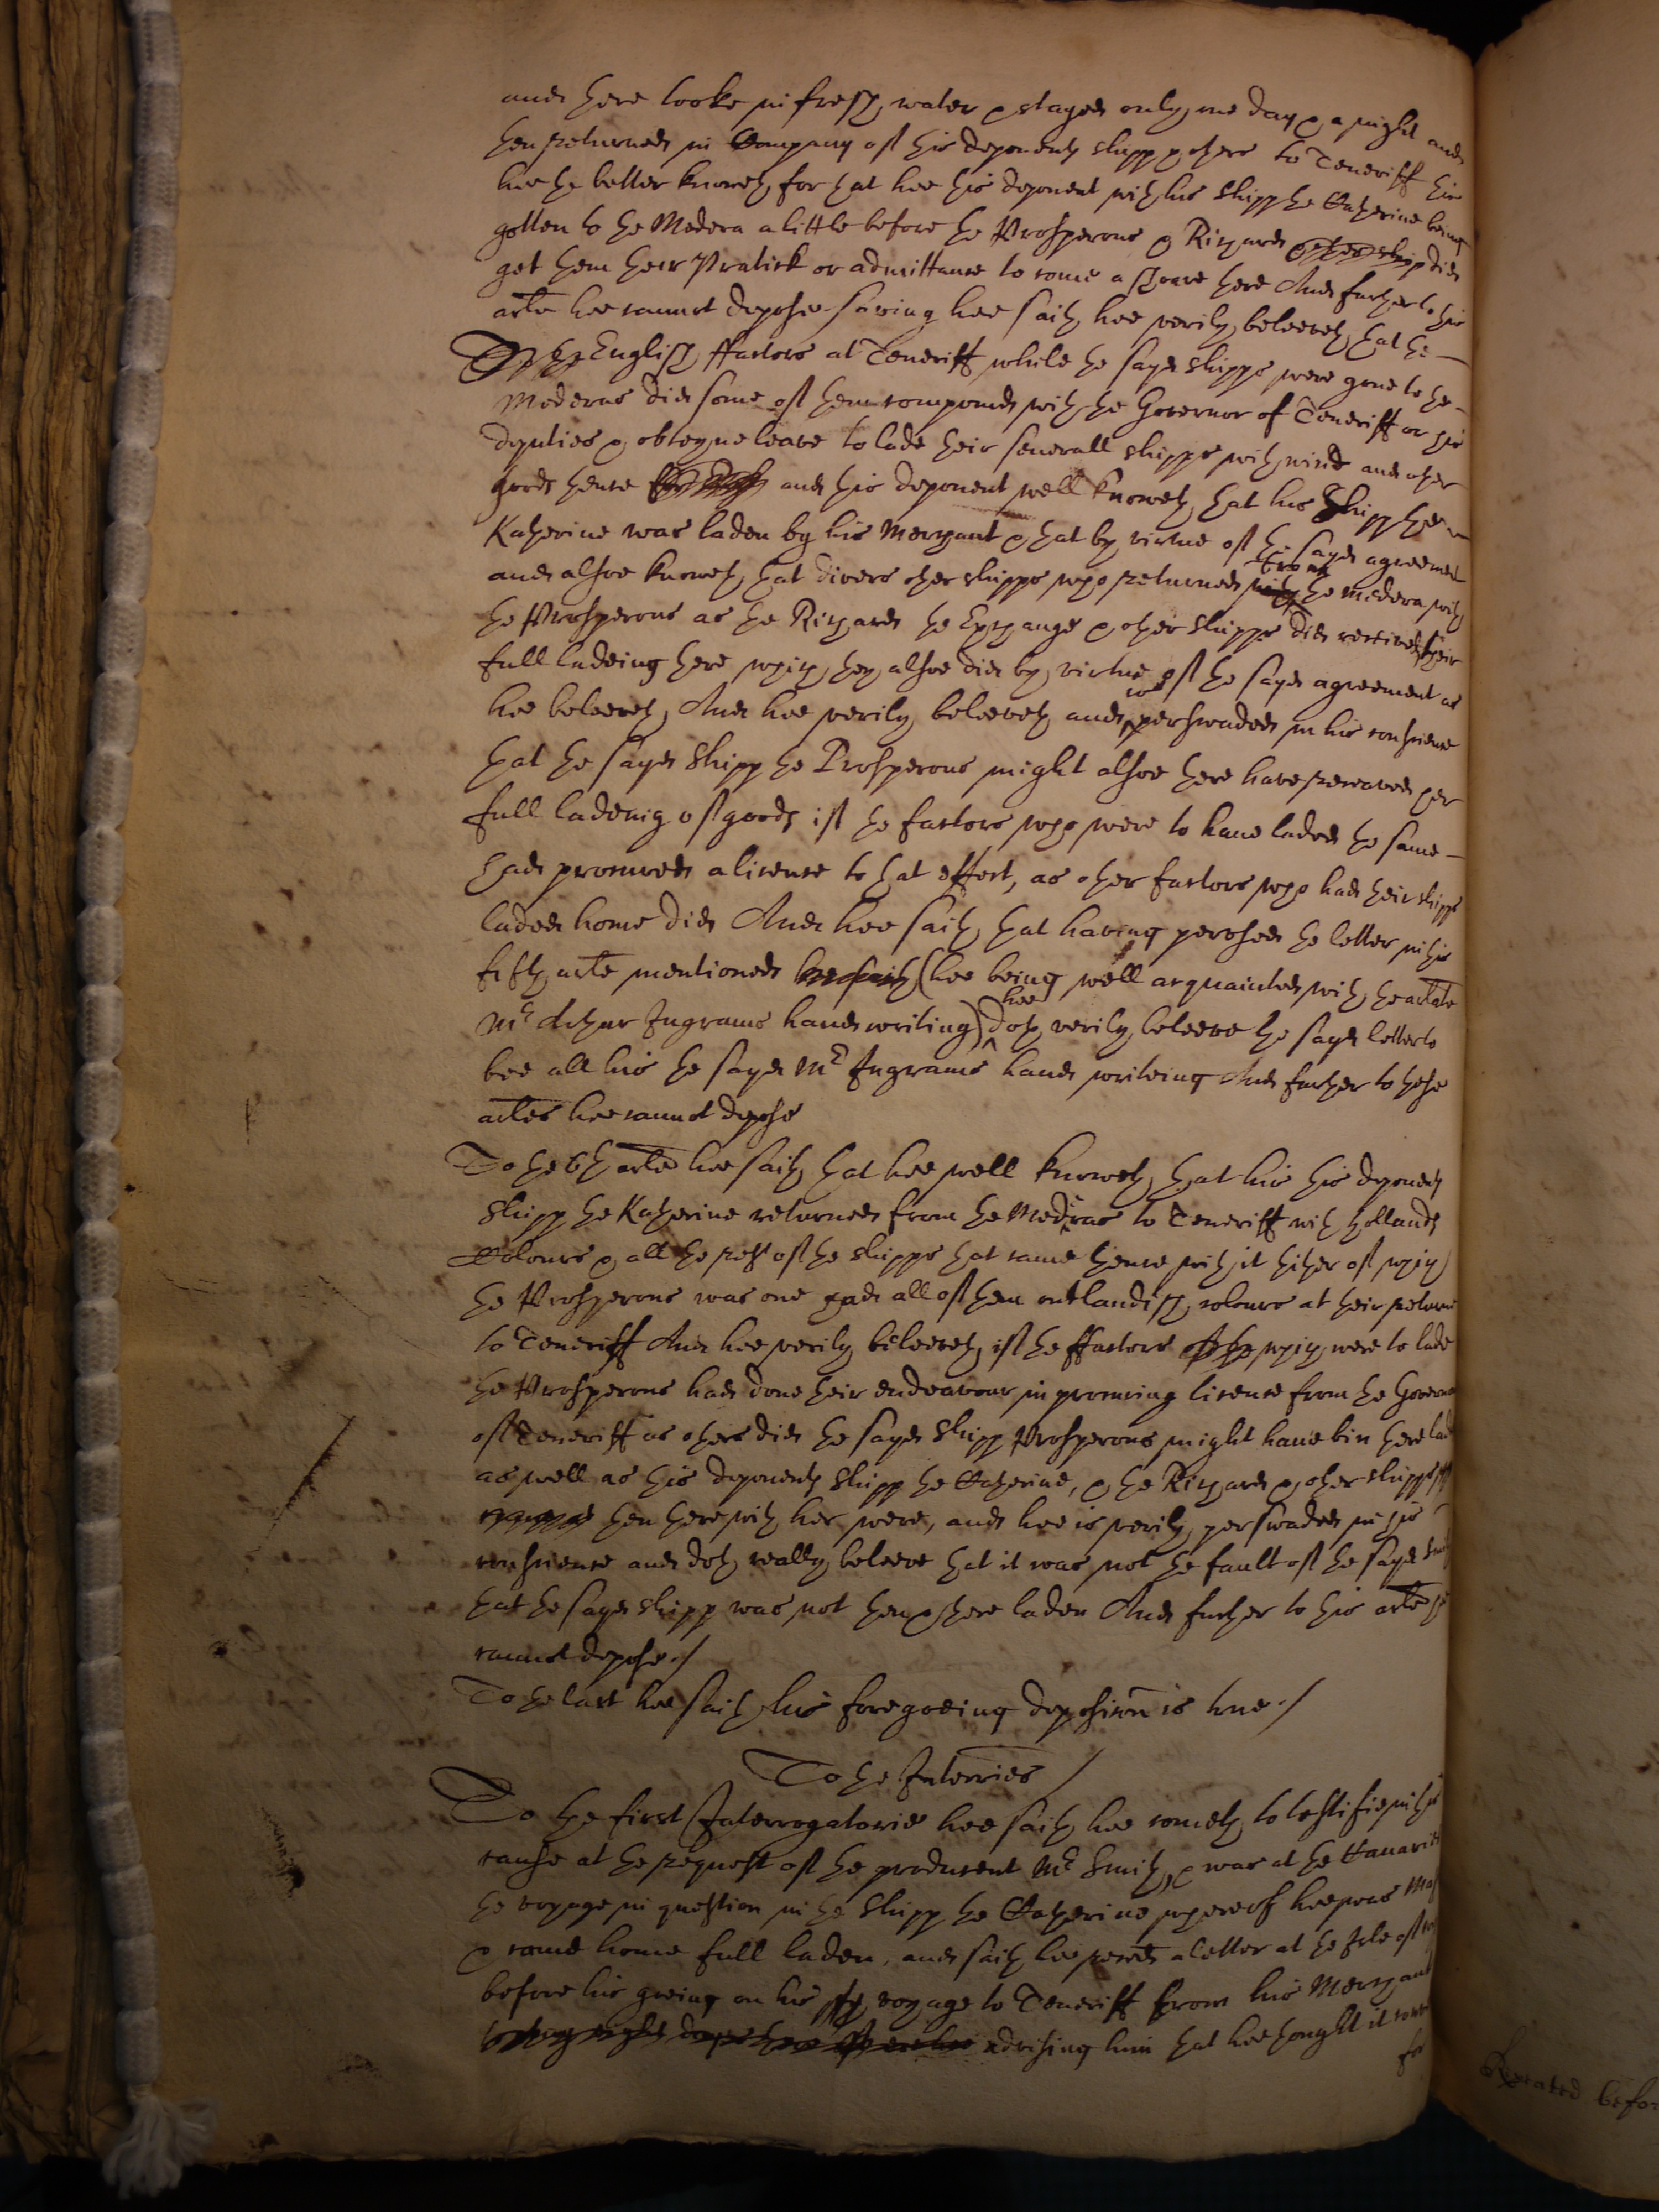 and there tooke in fresh water & stayed only one day & a night and
then returned in Company of this deponents shipp & others to Teneriff this
hee the better knoweth for that hee this deponent with his shipp the Katherine being
gotten to the Medera a little before the Prosperous & Richard did
get them their Pratick or admittance to come a shoare there And further to this
arle hee cannot depose saving hee saith hee verily beleeveth that the
English ffactors at Teneriff while the sayd shipps were gone to the
Mederas did some of them compound with the Governor of Teneriff or his
deputies & obteyne leave to lade their severall shipps with wine and other
goods thence and this deponent well knoweth that his shipp the
Katherine was laden by his Merchant & that by virtue of the sayd agreement
and alsoe knoweth that divers other shipps who returned from the Medera with
the Prosperous as the Richard the Exchange & other shipps did receive their
full ladeing there which they alsoe did by virtue of the sayd agreement as
hee beleeveth, And hee verily beleeveth and is perswaded in his conscience
that the sayd Shipp the Prosperous might alsoe there have received her
full ladeing of goods if the factors who were to have laded the same
had procured a licence to that effect, as other factors who had their shipps
laded home did And hee saith that having perused the letter in this
fifth arle mentioned (hee being well acquainted with the arlate
Mr Arthur Ingrams hand writing) hee doth verily beleeve the sayd letter to
bee all his the sayd Mr Ingrams hand writeing And further to these
arles hee cannot depose
To the 6th arle hee saith that hee well knoweth that his this deponents
Shipp the Katherine returned from the Mederas to Teneriff with hollands
Colours & all the rest of the shipps that came thence with it thither of which
the Prosperous was one had all of them outlandish colours at their returne
to Teneriff And hee verily beleeveth if the ffactors which were to lade
the Prosperous had done their endeavour in procuring licence from the Governor
of Teneriff as others did the sayd Shipp Prosperous might have bin there lad
as well as this deponents Shipp the Katherine, & the Richard & other shipps
then there with her were, and hee is verily perswaded in his
conscience and doth really beleeve that it was not the fault of the sayd Smith
that the sayd shipp was not then & there laden And further to this arle hee
cannot depose./
To the last hee saith his foregoeing deposicon is true./
To the Interries /
To the first Interrogatorie hee saith hee cometh to testifie in this
cause at the request of the producent Mr Smith, & was at the Canaries
the voyage in question in the Shipp the Katherine whereof hee was Mas
& came home full laden, and saith hee recd a letter at the Isle of
before his goeing on his voyage to Teneriff from his Merchant
advising him that hee thought it
for
Repeated before